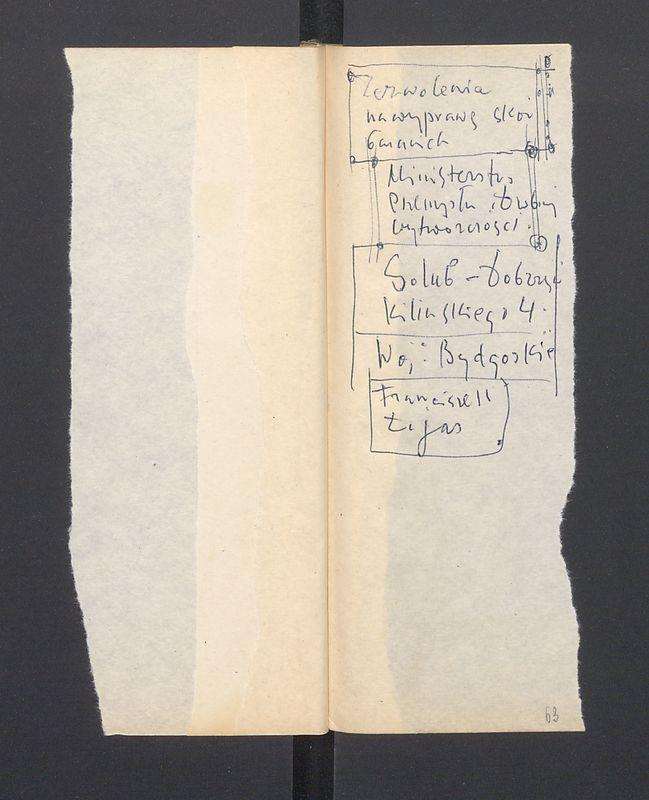 Zezwolenia
na wyprawę skór
baranich
Ministerstwo
Przemysłu i Drobnej
wytwórczości.
Golub - Dobrzyń
Kilińskiego 4.
Woj: Bydgoskie
Franciszek
63